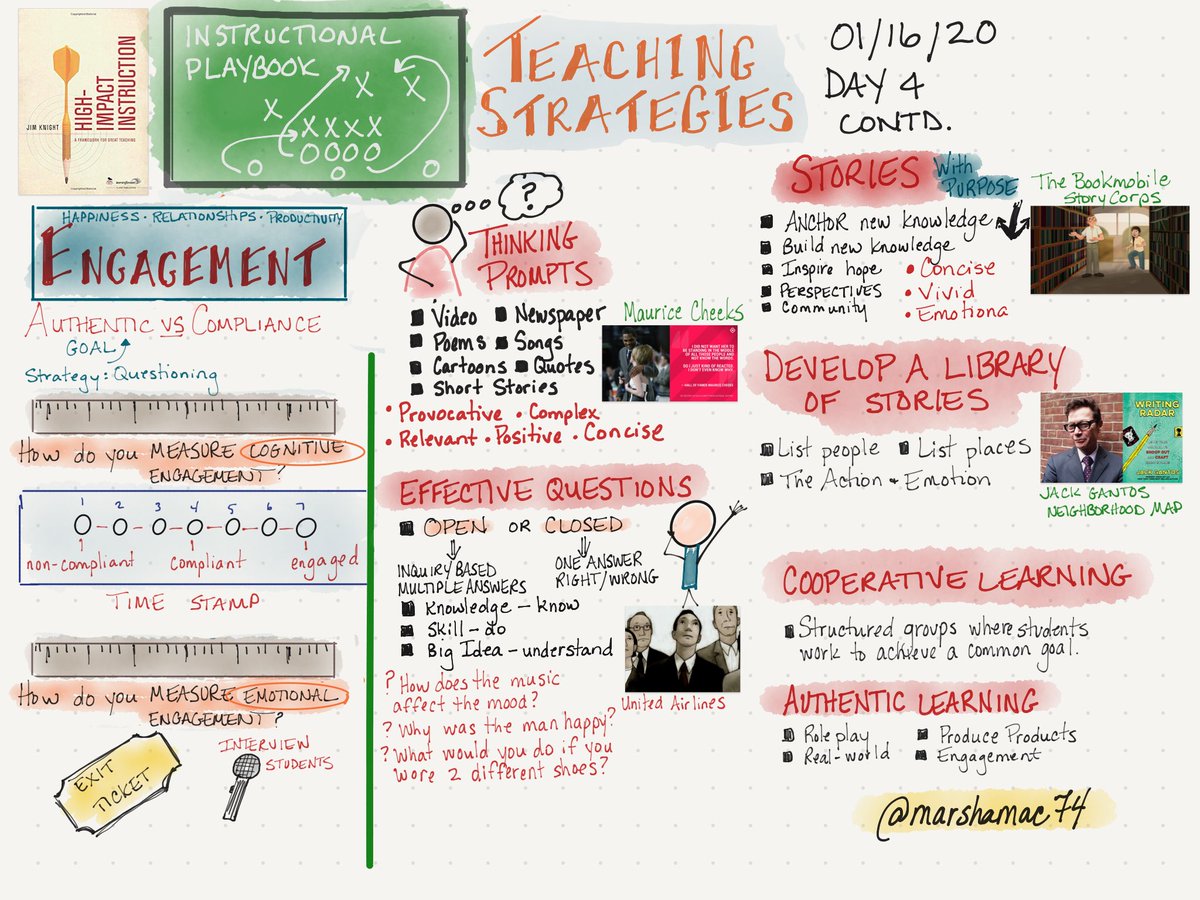 JIM KNIGHT
HIGH-
IMPACT
INSTRUCTION
A FRAMEWORK FOR GREAT TEACHING
INSTRUCTIONAL
PLAYBOOK
X
X X
XXXX
OOOO
O O O
TEACHING
STRATEGIES
01/16/20
DAY 4
CONTD.
HAPPINESS · RELATIONSHIPS · PRODUCTIVITY
ENGAGEMENT
AUTHENTIC VS COMPLIANCE
GOAL
Strategy: Questioning
How do you MEASURE COGNITIVE
ENGAGEMENT?
1 2 3 4 5 6 7
non-compliant compliant engaged
TIME STAMP
How do you MEASURE EMOTIONAL
ENGAGEMENT?
EXIT
TICKET
INTERVIEW
STUDENTS
?
THINKING
PROMPTS
Video Newspaper
Poems Songs
Cartoons Quotes
Short Stories
• Provocative • Complex
• Relevant • Positive • Concise
Maurice Cheeks
I DID NOT WANT HER TO
BE STANDING IN THE MIDDLE
OF ALL THESE PEOPLE AND
NOT KNOW THE WORDS.
SO I JUST KIND OF REACTED.
I DIDN'T EVEN KNOW WHY.
- HALL OF FAMER MAURICE CHEEKS
EFFECTIVE QUESTIONS
OPEN OR CLOSED
INQUIRY BASED
MULTIPLE ANSWERS
ONE ANSWER
RIGHT/WRONG
Knowledge – know
Skill – do
Big Idea – understand
? How does the music
affect the mood?
? Why was the man happy?
? What would you do if you
wore 2 different shoes?
United Airlines
STORIES With
PURPOSE
ANCHOR new knowledge
Build new knowledge
Inspire hope
PERSPECTIVES
Community
• Concise
• Vivid
• Emotiona
The Bookmobile
StoryCorps
DEVELOP A LIBRARY
OF STORIES
List people List places
The Action + Emotion
WRITING
RADAR
JACK GANTOS
JACK GANTOS
NEIGHBORHOOD MAP
COOPERATIVE LEARNING
Structured groups where students
work to achieve a common goal.
AUTHENTIC LEARNING
Role play Produce Products
Real-world Engagement
@marshamac74